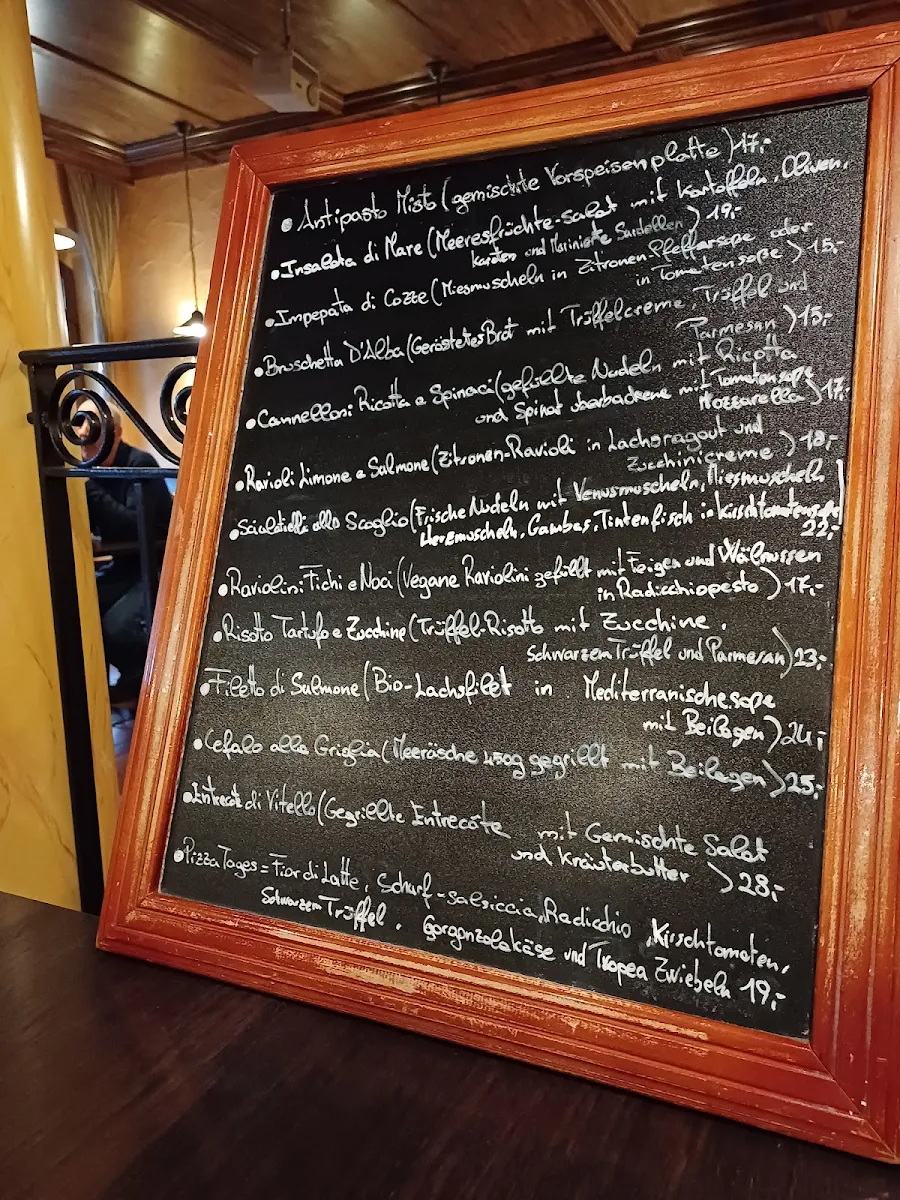 • Antipasto Misto (gemischte Vorspeisenplatte) 17,-
• Insalata di Mare (Meeresfrüchte-Salat mit Kartoffeln, Oliven,
Karotten und Marinierte Sardellen) 19,-
• Impepata di Cozze (Miesmuscheln in Zitronen-Pfeffersoße oder
in Tomatensoße) 15,-
• Bruschetta D'Alba (Geröstetes Brot mit Trüffelcreme, Trüffel und
Parmesan) 15,-
• Cannelloni Ricotta e Spinaci (gefüllte Nudeln mit Ricotta
und Spinat überbackene mit Tomatensoße
Mozzarella) 17,-
• Ravioli Limone e Salmone (Zitronen-Ravioli in Lachsragout und
Zucchinicreme) 18,-
• Scialatielli allo Scoglio (Frische Nudeln mit Venusmuscheln, Miesmuscheln
Herzmuscheln, Gambas, Tintenfisch in Kirschtomatensoße)
22,-
• Raviolini Fichi e Noci (Vegane Raviolini gefüllt mit Feigen und Walnussen
in Radicchiopesto) 17,-
• Risotto Tartufo e Zucchine (Trüffel-Risotto mit Zucchine,
Schwarzem Trüffel und Parmesan) 23,-
• Filetto di Salmone (Bio-Lachsfilet in Mediterranischesoße
mit Beilagen) 24,-
• Cefalo alla Griglia (Meeräsche 450g gegrillt mit Beilagen) 25,-
• Entrecote di Vitello (Gegrillte Entrecôte mit Gemischte Salat
und Kräuterbutter) 28,-
• Pizza Tages = Fior di Latte, Scharf-Salsiccia, Radicchio, Kirschtomaten,
Schwarzem Trüffel, Gorgonzolakäse und Tropea Zwiebeln 19,-